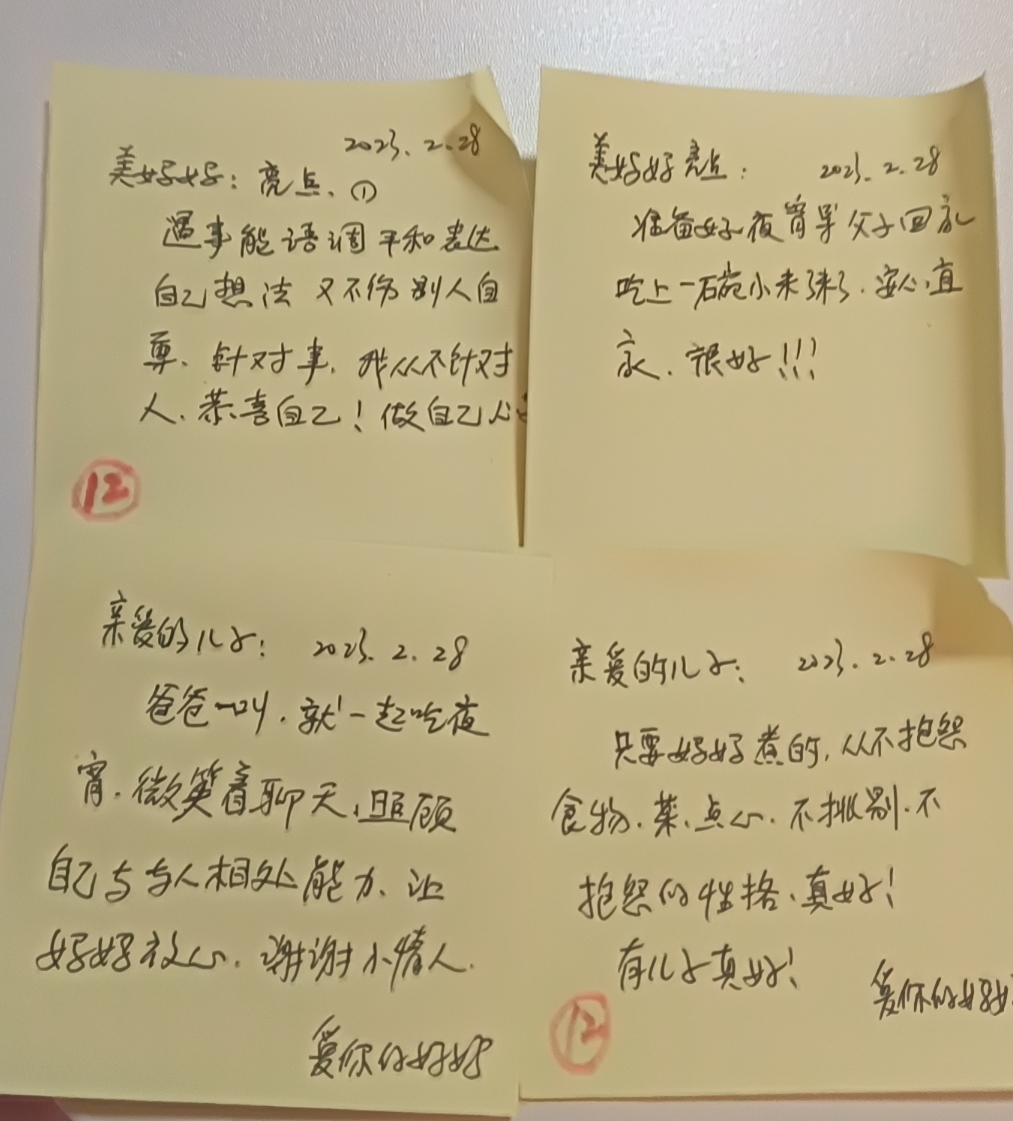 2023.2.28
美好好：亮点、①
遇事能语调平和表达
自己想法 又不伤别人自
尊、针对事、我从不针对
人、恭喜自己！做自己
12
美好好亮点： 2023.2.28
准备好夜宵等父子回家
吃上一碗小米粥、安心、宜
家、很好！！！
亲爱的儿子： 2023.2.28
爸爸一叫，就一起吃夜
宵、微笑着聊天、照顾
自己与与人相处能力、让
好好放心、谢谢小情人.
爱你的好好
亲爱的儿子： 2023.2.28
只要好好煮的，从不抱怨
食物、菜、点心、不挑剔、不
抱怨的性格、真好！
有儿子真好！
爱你的好好
12